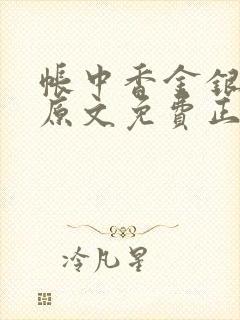 帳中香金銀
原文免費正
冷凡星